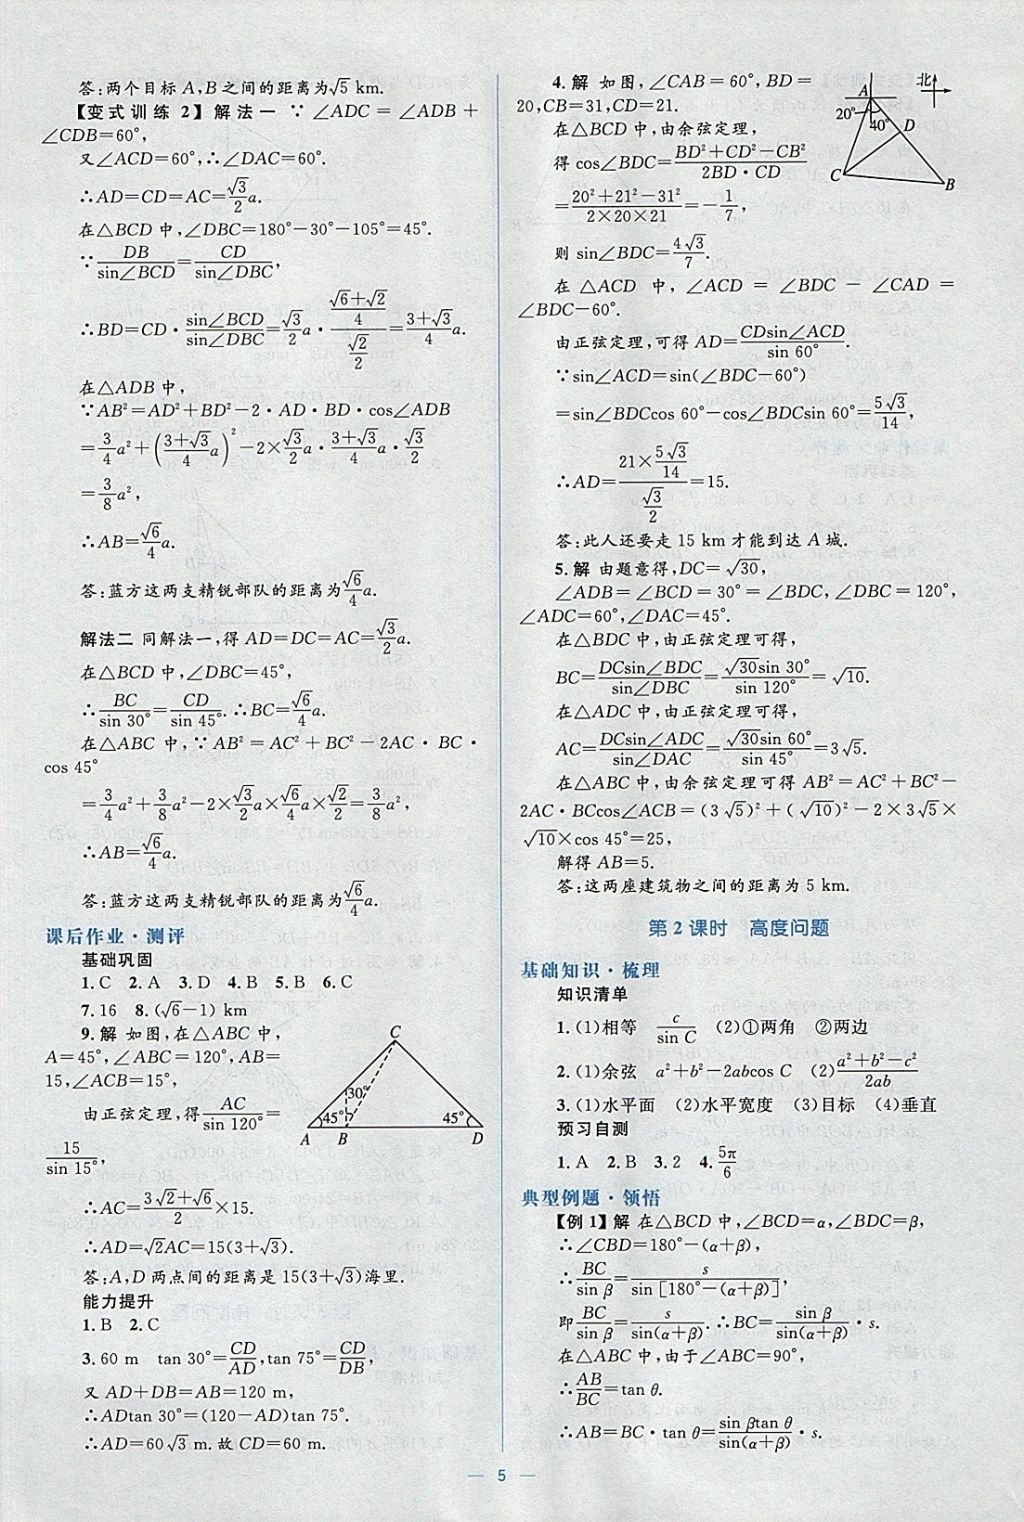 答:两个目标 A,B 之间的距离为√5 km.
【变式训练 2】 解法一 ∵∠ADC=∠ADB+
∠CDB=60°,
又∠ACD=60°,∴∠DAC=60°.
∴AD=CD=AC=√3/2 a.
在△BCD 中,∠DBC=180°-30°-105°=45°.
∵DB/sin∠BCD=CD/sin∠DBC,
∴BD=CD·sin∠BCD/sin∠DBC=√3/2 a·((√6+√2)/4)/(√2/2)=(3+√3)/4 a.
在△ADB 中,
∵AB²=AD²+BD²-2·AD·BD·cos∠ADB
=3/4 a²+((3+√3)/4 a)²-2×√3/2 a·(3+√3)/4 a·√3/2
=3/8 a²,
∴AB=√6/4 a.
答:蓝方这两支精锐部队的距离为√6/4 a.
解法二 同解法一,得 AD=DC=AC=√3/2 a.
在△BCD 中,∠DBC=45°,
∴BC/sin 30°=CD/sin 45°.∴BC=√6/4 a.
在△ABC 中,∵AB²=AC²+BC²-2AC·BC·
cos 45°
=3/4 a²+3/8 a²-2×√3/2 a×√6/4 a×√2/2=3/8 a²,
∴AB=√6/4 a.
答:蓝方这两支精锐部队的距离为√6/4 a.
课后作业·测评
基础巩固
1.C 2.A 3.D 4.B 5.B 6.C
7.16 8.(√6-1) km
9.解 如图,在△ABC 中,
A=45°,∠ABC=120°,AB=
15,∠ACB=15°,
由正弦定理,得AC/sin 120°=
15/sin 15°,
∴AC=(3√2+√6)/2×15.
∴AD=√2AC=15(3+√3).
答:A,D 两点间的距离是 15(3+√3)海里.
C
30°
45°
45°
A
B
D
能力提升
1.B 2.C
3.60 m tan 30°=CD/AD,tan 75°=CD/DB,
又 AD+DB=AB=120 m,
∴ADtan 30°=(120-AD)tan 75°.
∴AD=60√3 m.故 CD=60 m.
4.解 如图,∠CAB=60°,BD=
20,CB=31,CD=21.
在△BCD 中,由余弦定理,
得 cos∠BDC=(BD²+CD²-CB²)/(2BD·CD)
=(20²+21²-31²)/(2×20×21)=-1/7,
则 sin∠BDC=4√3/7.
北
A
20°
40°
D
C
B
在△ACD 中,∠ACD=∠BDC-∠CAD=
∠BDC-60°.
由正弦定理,可得 AD=CDsin∠ACD/sin 60°.
∵sin∠ACD=sin(∠BDC-60°)
=sin∠BDCcos 60°-cos∠BDCsin 60°=5√3/14,
∴AD=(21×5√3/14)/(√3/2)=15.
答:此人还要走 15 km才能到达 A 城.
5.解 由题意得,DC=√30,
∠ADB=∠BCD=30°=∠BDC,∠DBC=120°,
∠ADC=60°,∠DAC=45°.
在△BDC 中,由正弦定理可得,
BC=DCsin∠BDC/sin∠DBC=√30sin 30°/sin 120°=√10.
在△ADC 中,由正弦定理可得,
AC=DCsin∠ADC/sin∠DAC=√30sin 60°/sin 45°=3√5.
在△ABC 中,由余弦定理可得 AB²=AC²+BC²-
2AC·BCcos∠ACB=(3√5)²+(√10)²-2×3√5×
√10×cos 45°=25,
解得 AB=5.
答:这两座建筑物之间的距离为 5 km.
第 2 课时 高度问题
基础知识·梳理
知识清单
1.(1)相等 c/sin C (2)①两角 ②两边
2.(1)余弦 a²+b²-2abcos C (2)(a²+b²-c²)/2ab
3.(1)水平面 (2)水平宽度 (3)目标 (4)垂直
预习自测
1.A 2.B 3.2 4.5π/6
典型例题·领悟
【例 1】解 在△BCD 中,∠BCD=α,∠BDC=β,
∴∠CBD=180°-(α+β),
∴BC/sin β=s/sin [180°-(α+β)]
即BC/sin β=s/sin(α+β).∴BC=sin β/sin(α+β)·s.
在△ABC 中,由于∠ABC=90°,
∴AB/BC=tan θ.
∴AB=BC·tan θ=sin βtan θ/sin(α+β)·s.
— 5 —